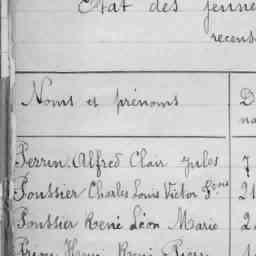 Etat des jeune
recens
Noms et prénoms
D
na
Perrin Alfred Clair Jules 7
Poussier Charles Louis Victor 21
Poussier René Léon Marie 2